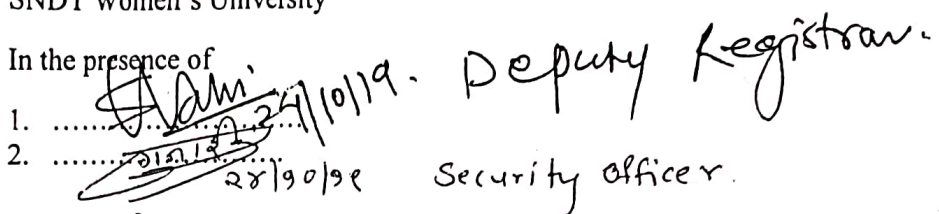 SNDT Women's University
In the presence of
1. ............ 24/10/19. Deputy Registrar.
2. ............ २४/१०/१९ Security officer.